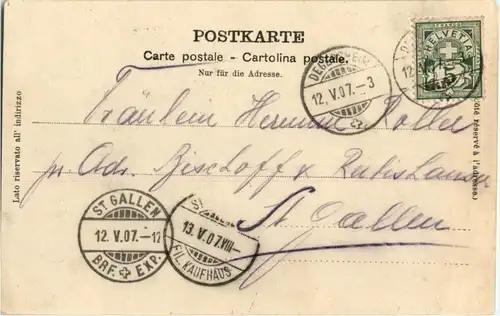 POSTKARTE
Carte postale - Cartolina postale.
Nur für die Adresse.
HELVETIA
DEGERSHEIM
12. V. 07. - 3
Lato riservato all' indirizzo
Côté réservé à l'adresse.
Fräulein
pr Adr. Bischoff &
St. Gallen
ST GALLEN
12. V. 07. - 12
BRF. EXP.
ST
13. V. 07. VIII -
FIL. KAUFHAUS